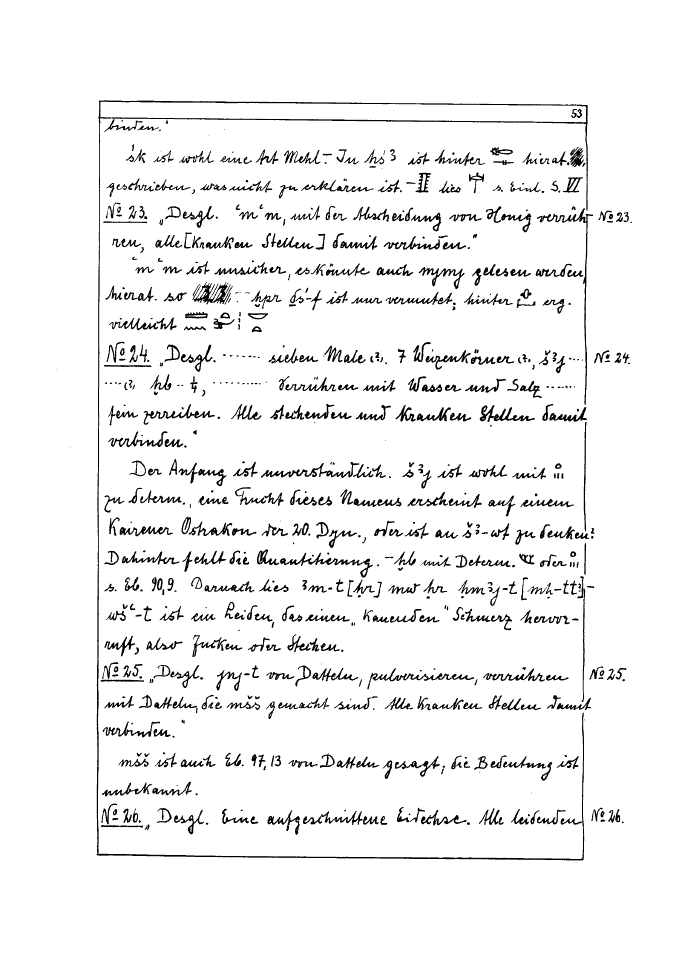 53
binden."
śk ist wohl eine Art Mehl. – In ḥsꜣ ist hinter hierat.
geschrieben, was nicht zu erklären ist. – lies s. Einl. S. VI
No 23. „Desgl. ʿmʿm, mit der Abscheidung von Honig verrüh- No 23.
ren, alle [kranken Stellen] damit verbinden."
ʿmʿm ist unsicher, es könnte auch mjmj gelesen werden,
hierat. so – ḫpr ḏś-f ist nur vermutet; hinter erg.
vielleicht
No 24. „Desgl. ....... sieben Male (?). 7 Weizenkörner (?), šꜣj .... No 24.
....(?), ḫb .. ¼, .......... Verrühren mit Wasser und Salz ......
fein zerreiben. Alle stechenden und kranken Stellen damit
verbinden."
Der Anfang ist unverständlich. šꜣj ist wohl mit
zu determ., eine Frucht dieses Namens erscheint auf einem
Kairener Ostrakon der 20. Dyn., oder ist an šꜣ-wt zu denken?
Dahinter fehlt die Quantitierung. – ḫb mit Determ. oder
s. Eb. 90,9. Darnach lies ꜣm-t [ḥr] mw ḥr ḥmꜣj-t [mḥ-tt] –
wšʿ-t ist ein Leiden, das einen „kauenden" Schmerz hervor-
ruft, also Jucken oder Stechen.
No 25. „Desgl. jnj-t von Datteln, pulverisieren, verrühren No 25.
mit Datteln, die mšš gemacht sind. Alle kranken Stellen damit
verbinden."
mšš ist auch Eb. 97,13 von Datteln gesagt; die Bedeutung ist
unbekannt.
No 26. „Desgl. Eine aufgeschnittene Eidechse. Alle leidenden No 26.